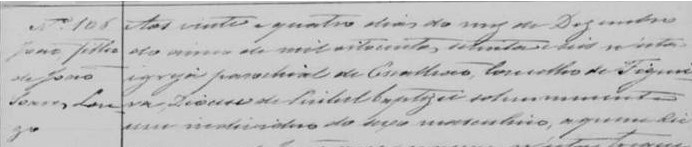 Nº 108
João filho
de João
Soares Lou-
ço
Aos vinte e quatro dias do mez de Dezembro
do anno de mil oitocentos setenta e seis n'esta
igreja parochial de Carvalhaes, Concelho de
Diocese de baptizei solemnemente
um individuo do sexo masculino, a quem dei